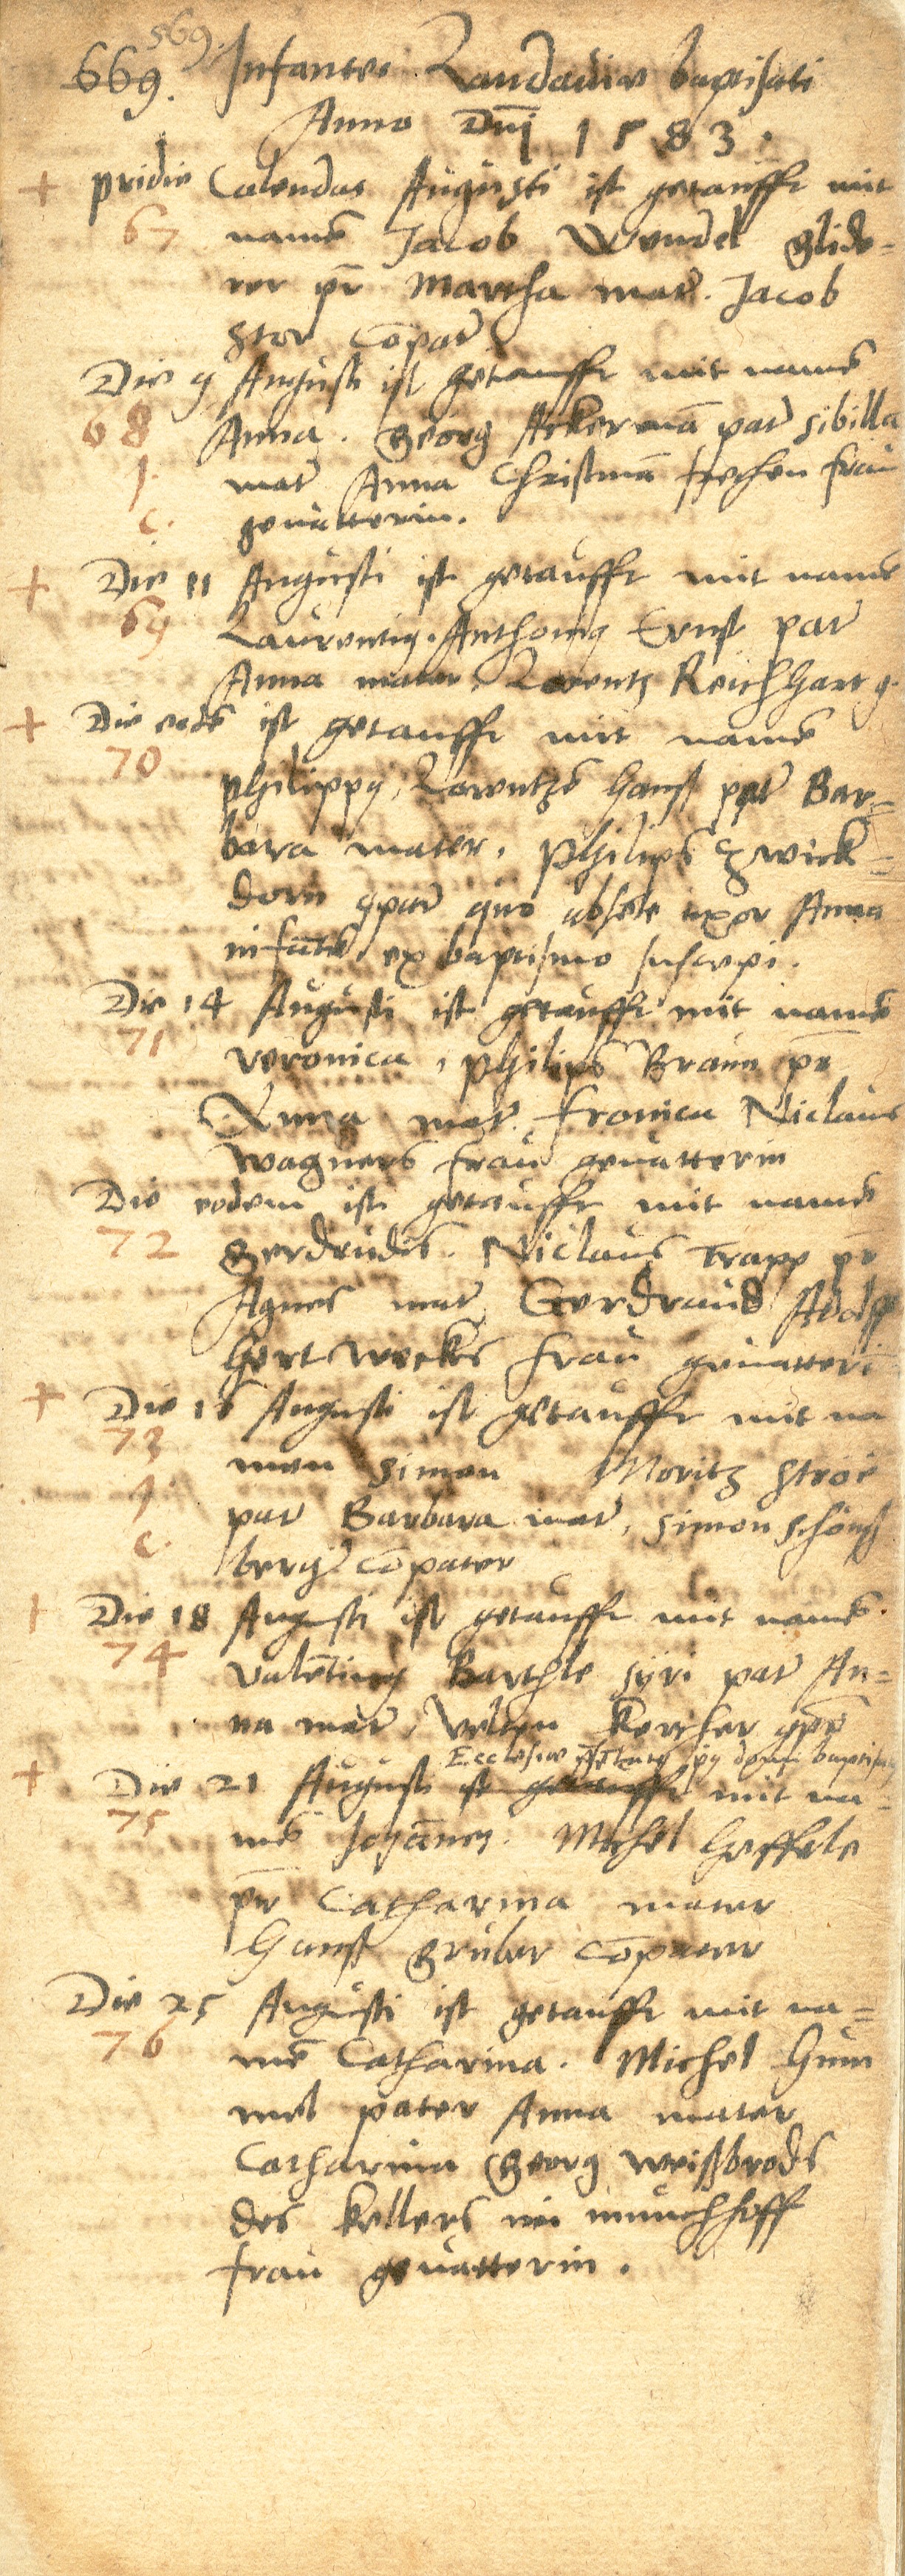 569.
669. Infantes Landaviae baptisati
Anno Dnī 1583.
+ pridie Calendas Augusti ist getaufft mit
67 namē Jacob Wendel Glide-
rer pr̄ Martha mat̄. Jacob
Stor Cōpat̄
Die 9 Augusti ist getaufft mit namē
68 Anna. Georg Ackermā pat̄ Sibilla
J. mat̄ Anna Christmā frau
C. gevatterin.
+ Die 11 Augusti ist getaufft mit namē
69 Laurentiꝰ. Anthoniꝰ Ernst pat̄
Anna mater. Lorentz Reichhart g.
+ Die eodē ist getaufft mit namē
70
Philippꝰ. Lorentzē Hanß pat̄ Bar-
bara mater. Philips Zwick-
dorn cpat̄ quo absēte uxor Anna
infātē ex baptismo suscepi.
Die 14 Augusti ist getaufft mit namē
71 Veronica, Philips Braun pr̄
Anna mat̄. Fronica Niclaus
Wagners frau gevatterin
Die eodem ist getaufft mit namē
72 Gerdrudis. Niclaus Trapp pr̄
Agnes mat̄ Gerdraud Adolff
Hertwecks frau gevatterī
+ Die 16 Augusti ist getaufft mit na
73 men Simon Moritz Stroē
J. pat̄ Barbara mat̄, Simon Schönß
C. berger Cōpater
+ Die 18 Augusti ist getaufft mit namē.
74 Valētinꝰ Barthle Syri pat̄ An-
na mat̄, Velten Kercher cpr̄
Ecclesiae domi baptisatꝰ
+ Die 21 Augusti ist getaufft mit na-
75 mē Johānes. Michel Heffele
pr̄ Catharina mater
Hanß Gruber Cōpater
Die 25 Augusti ist getaufft mit na-
76 mē Catharina. Michel Hum
mel pater Anna mater
Catharina Georg Weißbrods
des Kellers im münchhoff
frau gevatterin.